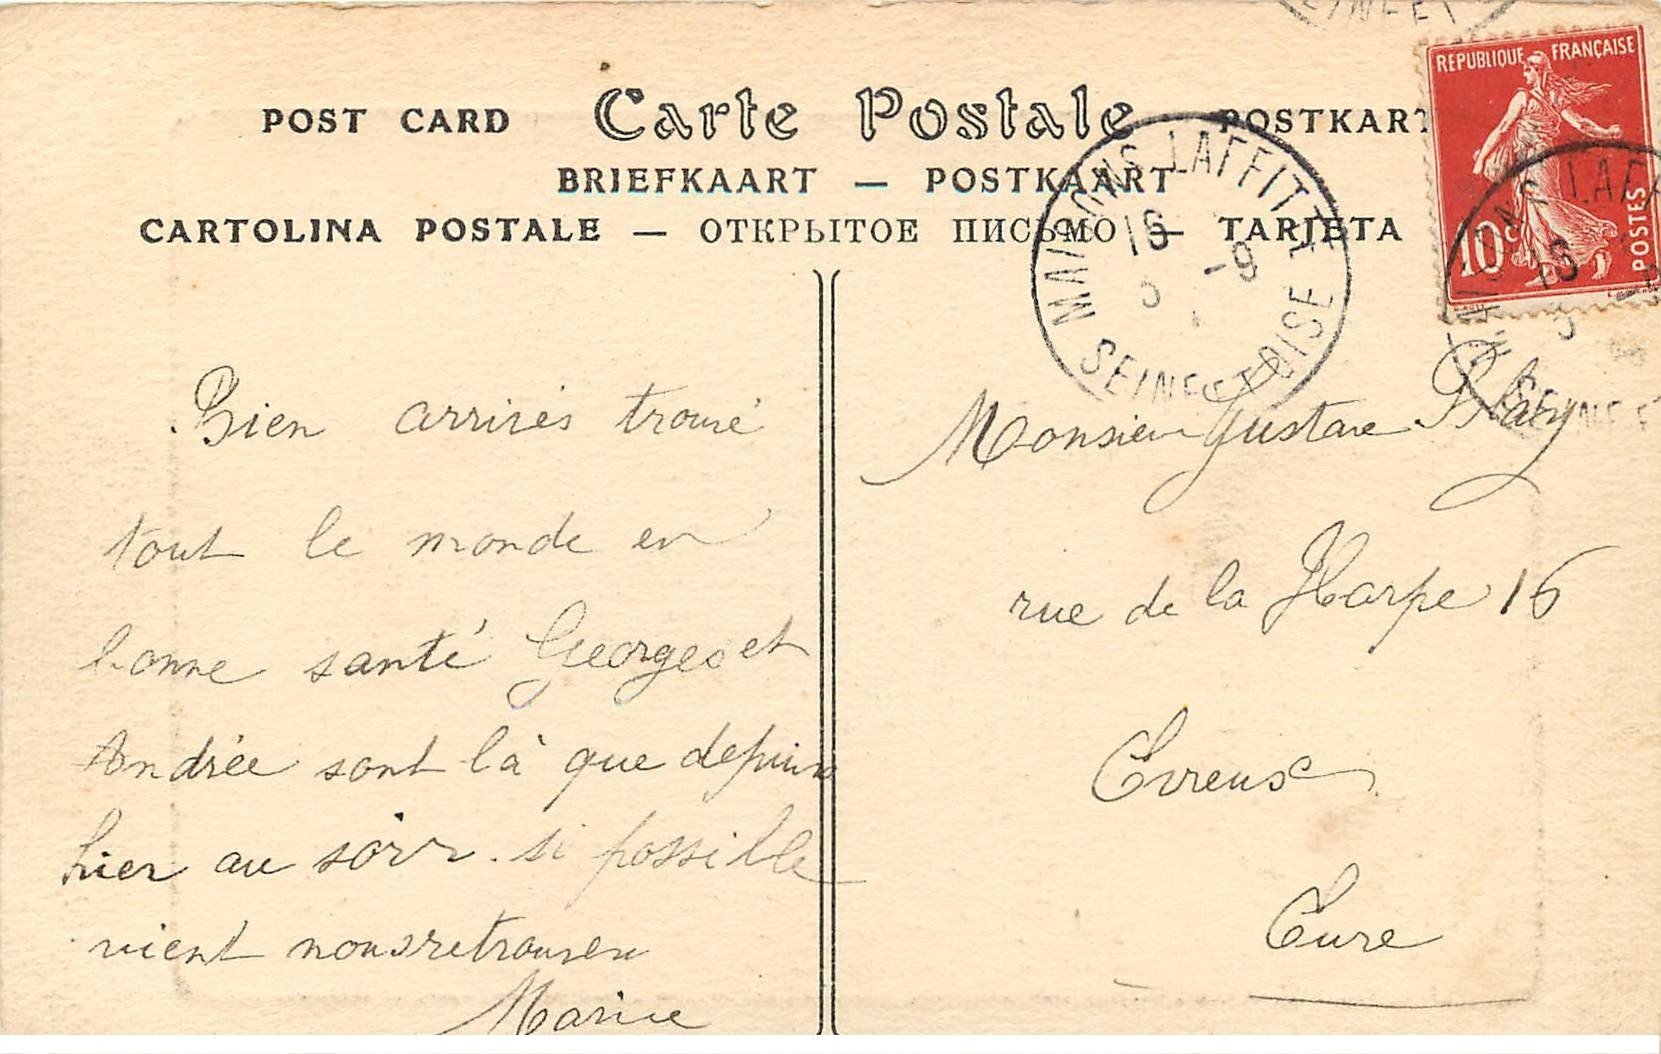 POST CARD Carte Postale POSTKART
BRIEFKAART — POSTKAART
CARTOLINA POSTALE — ОТКРЫТОЕ ПИСЬМО — TARJETA
REPUBLIQUE FRANÇAISE
10c POSTES
MAISONS LAFFITTE
16
5 -9
SEINE ET OISE
MAISONS LAFF
16
5
SEINE E
SEINE ET
Bien arrivés trouvé
tout le monde en
bonne santé Georges et
Andrée sont là que depuis
hier au soir. si possible
vient nous retrouver
Marie
Monsieur Gustave
rue de la Harpe 16
Evreux
Eure